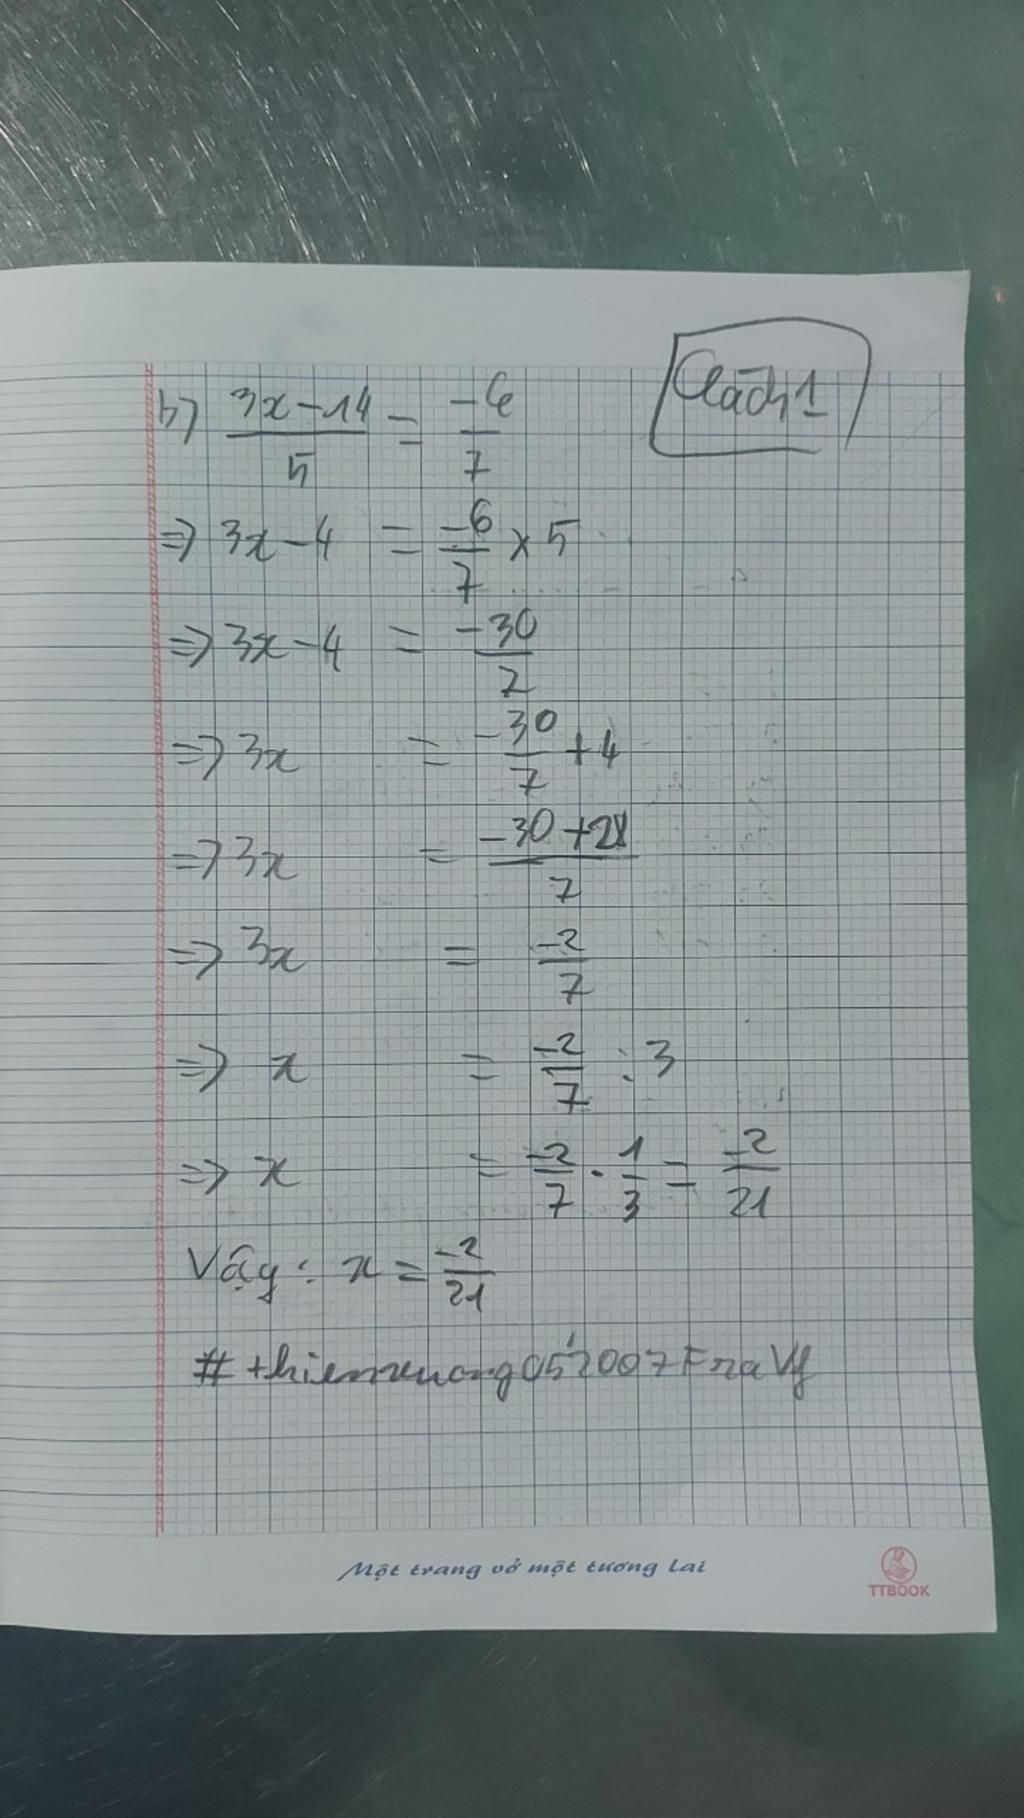 b) (3x-14)/5 = -6/7
Cách 1
=> 3x-4 = -6/7 x 5
=> 3x-4 = -30/7
=> 3x = -30/7 +4
=> 3x = (-30+28)/7
=> 3x = -2/7
=> x = -2/7 : 3
=> x = -2/7 . 1/3 = -2/21
Vậy: x = -2/21
Một trang vở một tương lai
TTBOOK